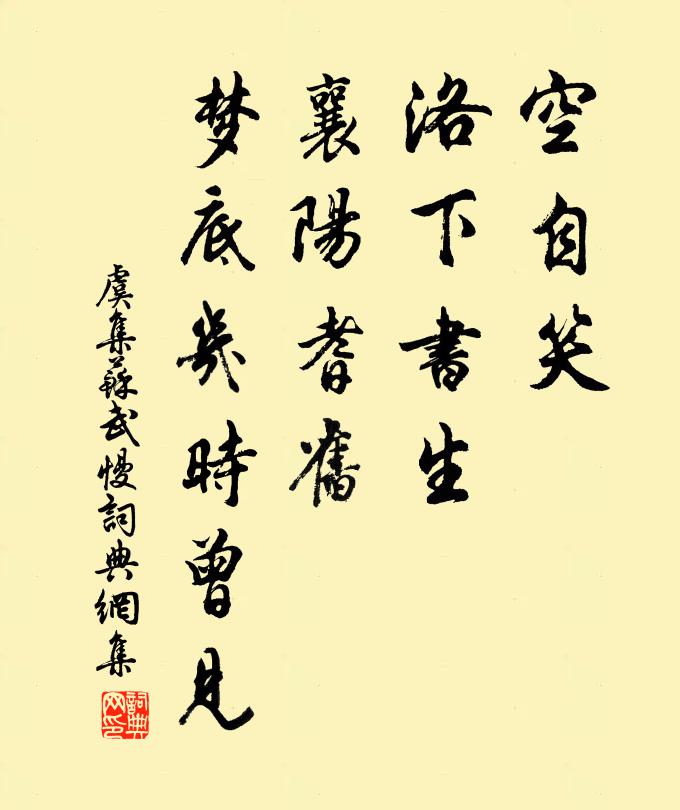 空自笑
洛下書生
襄陽耆舊
梦底幾時曾見
虞集蘇武慢詞典網集
詞典
网印